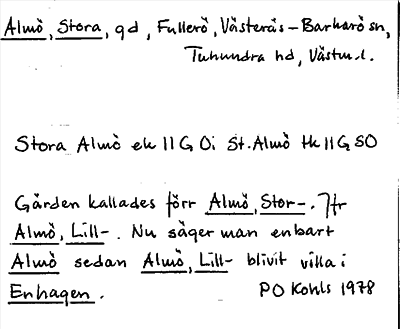 Almö, Stora, gd, Fullerö, Västerås-Barkarö sn,
Tuhundra hd, Västm.l.
Stora Almö ek 11G 0i St. Almö tk 11G SO
Gården kallades förr Almö, Stor-. Jfr
Almö, Lill-. Nu säger man enbart
Almö sedan Almö, Lill- blivit villa i
Enhagen. PO Kohls 1978